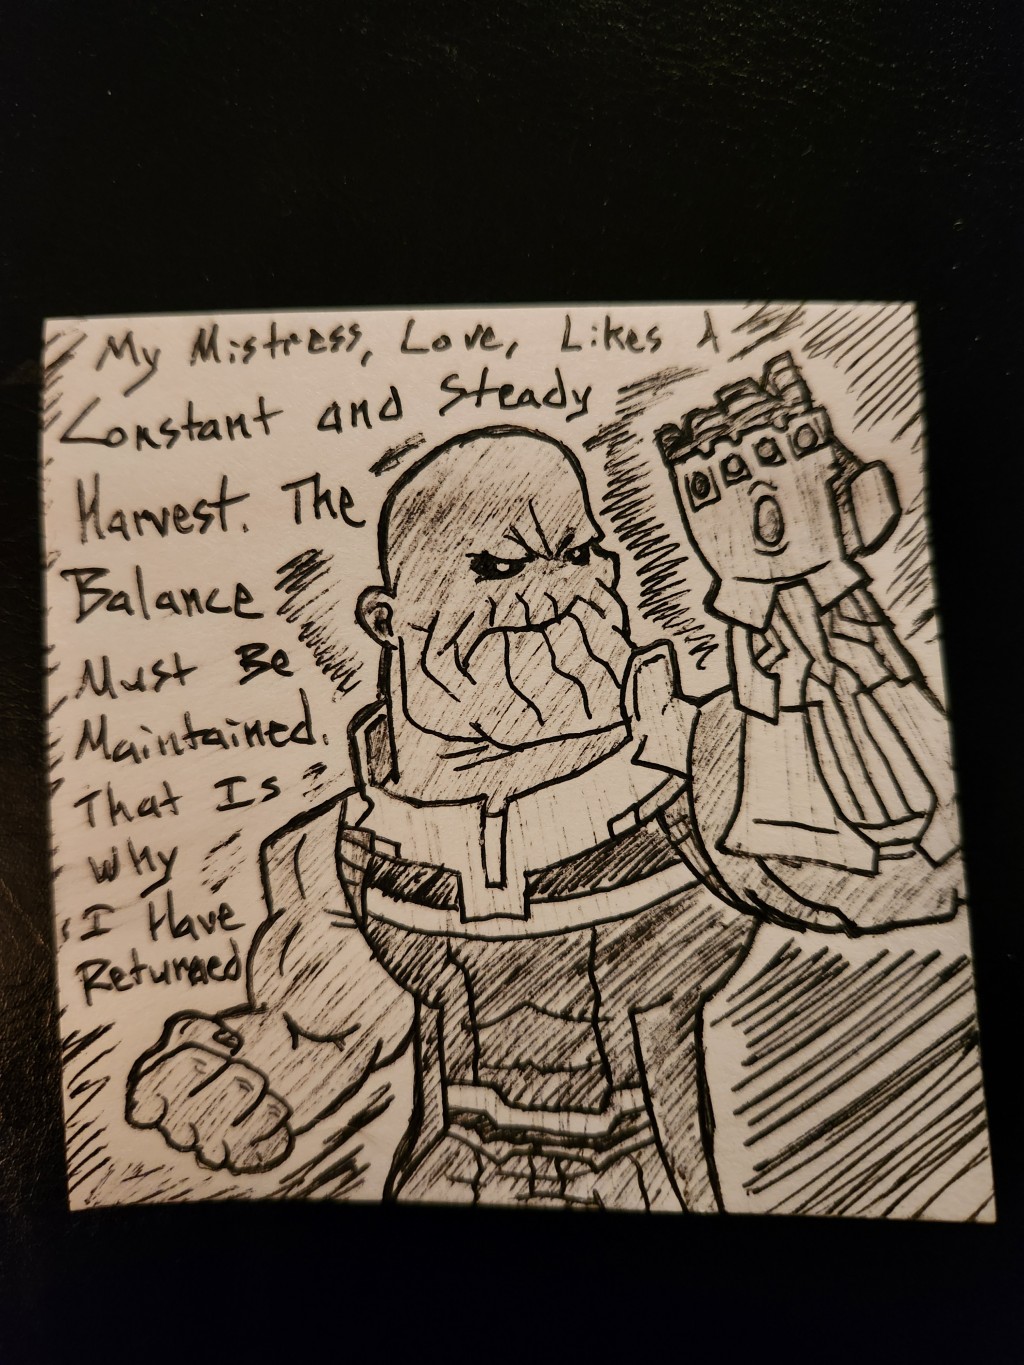 My Mistress, Love, Likes A
Constant and Steady
Harvest. The
Balance
Must Be
Maintained.
That Is
Why
I Have
Returned